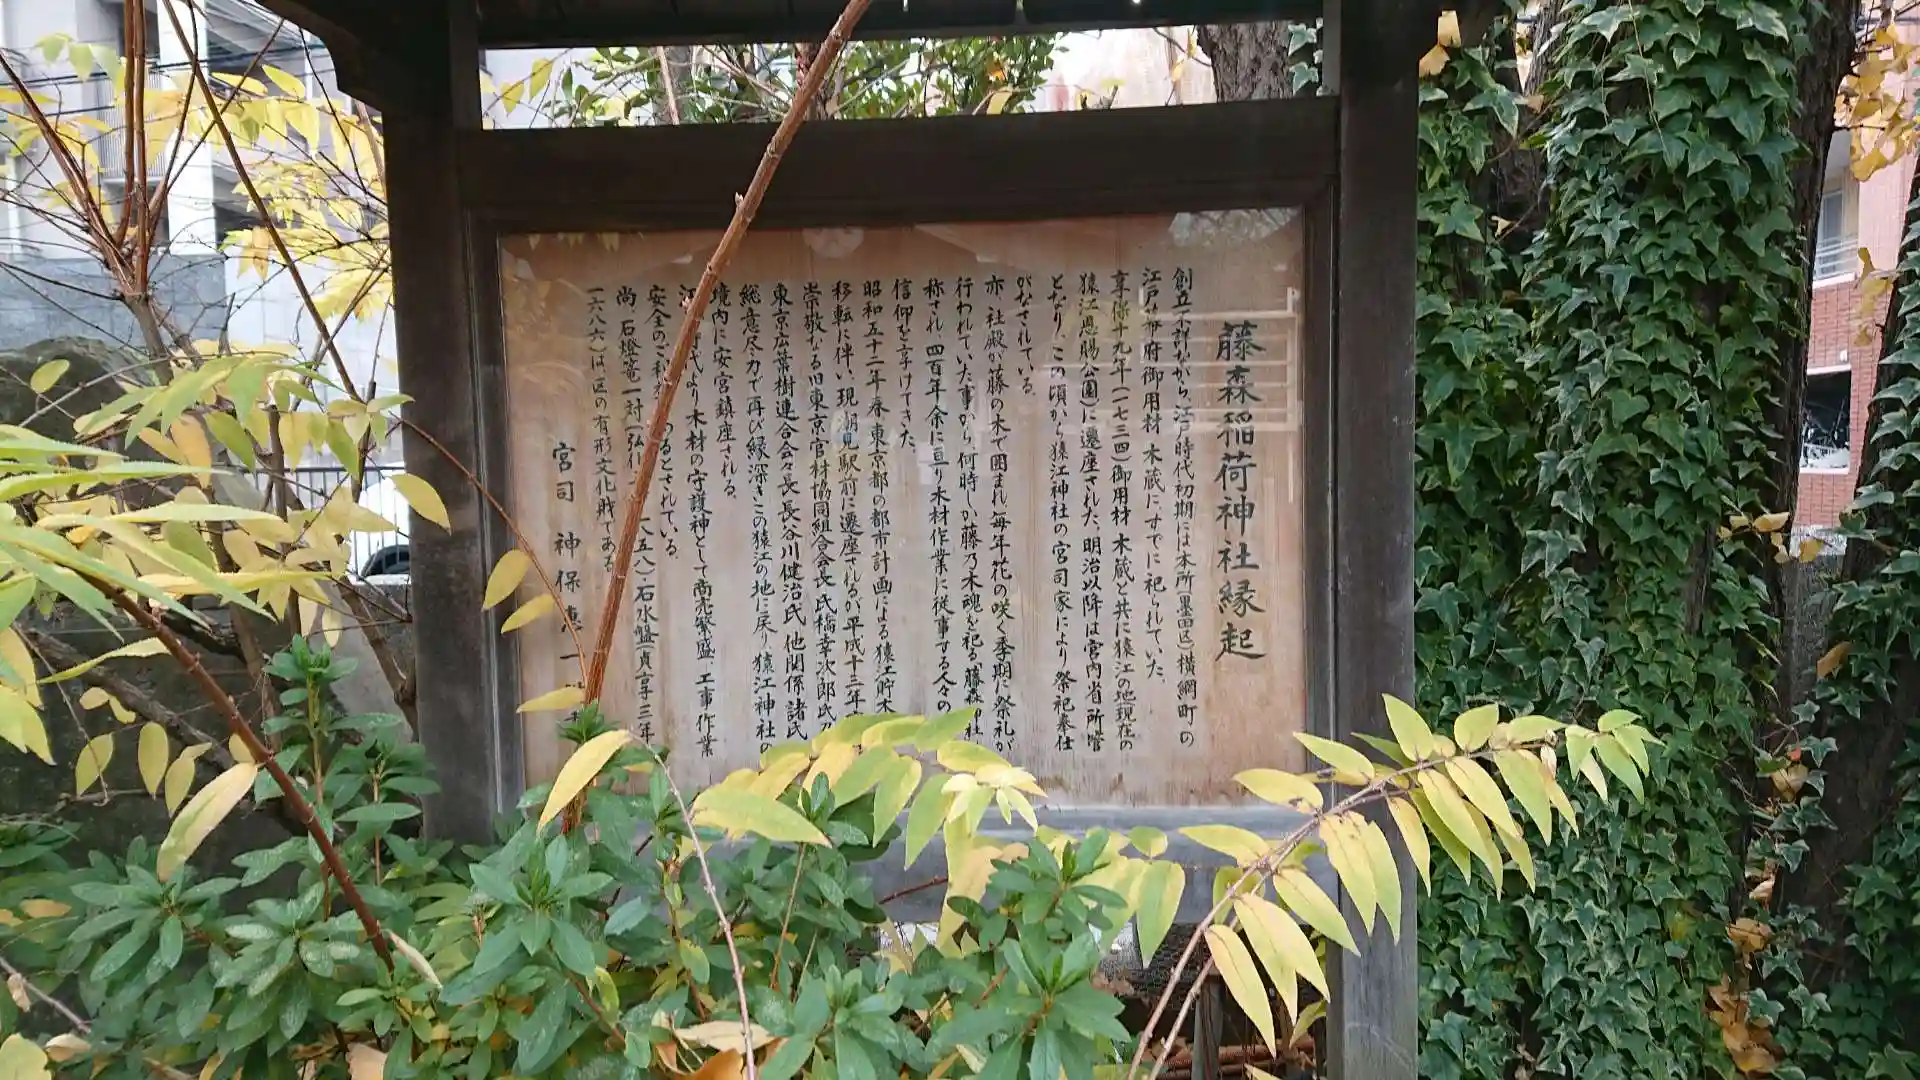 藤森稲荷神社縁起
創立不詳ながら、江戸時代初期には本所(墨田区)横綱町の
江戸幕府御用材木蔵にすでに祀られていた。
享保十九年(一七三四)御用材木蔵と共に猿江の地現在の
猿江恩賜公園)に遷座された。明治以降は宮内省所管
となり、この頃から猿江神社の宮司家により祭祀奉仕
がなされている。
亦、社殿が藤の木で囲まれ毎年花の咲く季期に祭礼が
行われていた事から何時しか藤乃木魂を祀る「藤森神社
称され、四百年余に亘り木材作業に従事する人々の
信仰を享けてきた。
昭和五十二年春、東京都の都市計画による猿江貯木
移転に伴い、現潮見駅前に遷座されるが平成十三年
崇敬なる旧東京官材協同組合会長氏橋幸次郎氏
東京広葉樹連合会々長長谷川健治氏、他関係諸氏
総意尽力で再び縁深きこの猿江の地に戻り猿江神社の
境内に安宮鎮座される。
代より木材の守護神として商売繁盛、工事作業
安全のご利 るとされている。
尚、石燈篭一対(弘仏 五八)石水盤(貞享三年
一六八六)は、区の有形文化財である
宮司 神保恵一